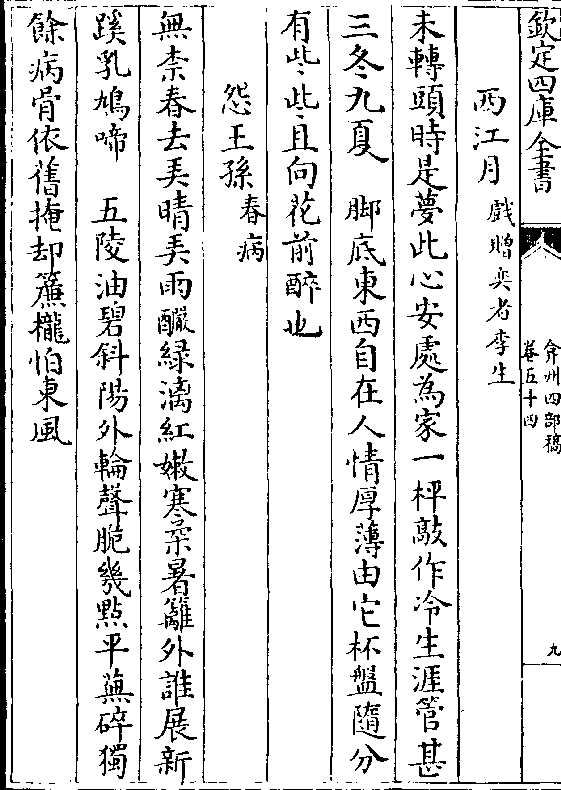 欽定四庫全書
弇州四部稿
卷五十四
九
西江月戲贈奕者李生
未轉頭時是夢此心安處為家一枰敲作冷生涯管甚
三冬九夏　脚底東西自在人情厚薄由它杯盤隨分
有些些且向花前醉也
怨王孫春病
無柰春去弄晴弄雨釅綠漓紅嫩寒柔暑籬外誰展新
蹊乳鳩啼　五陵油碧斜陽外輪聲脆幾㸃平蕪碎獨
餘病骨依舊掩却簾櫳怕東風